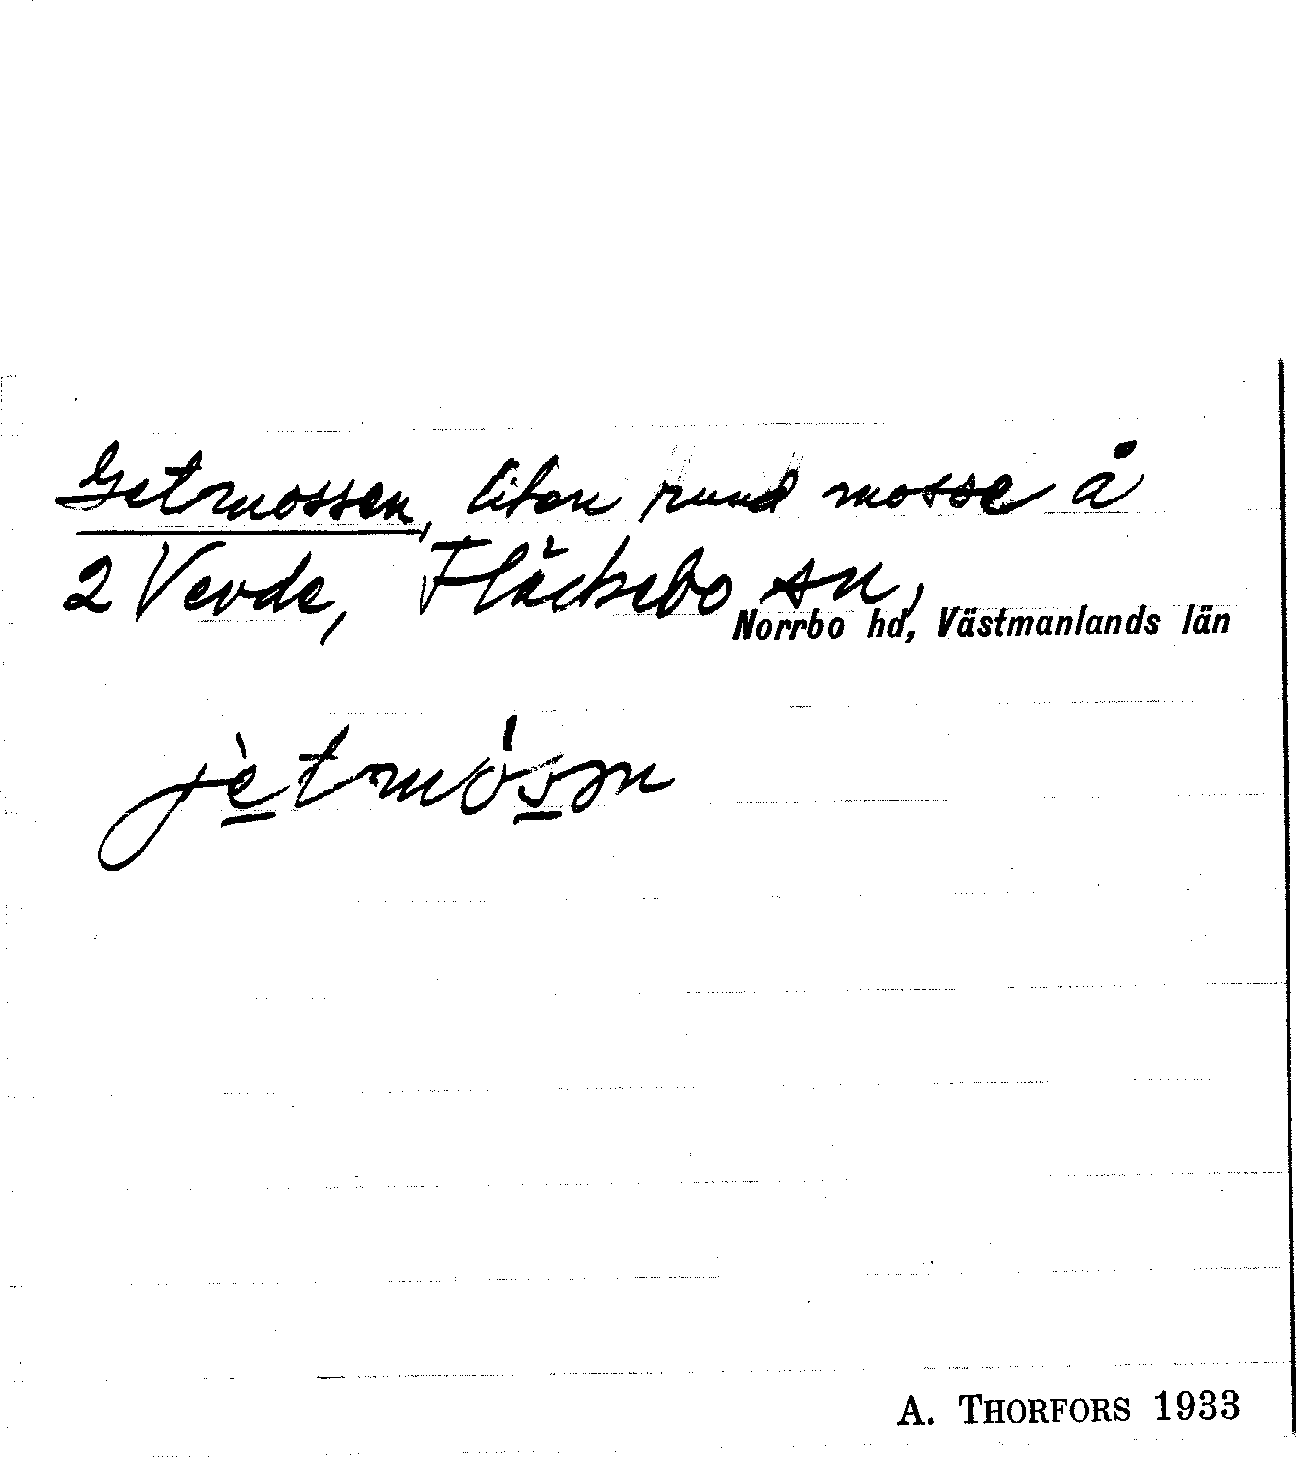 Getmossen, liten rund mosse å
2 Vevde, Fläckebo sn,
Norrbo hd, Västmanlands län
jètmósn
A. THORFORS 1933